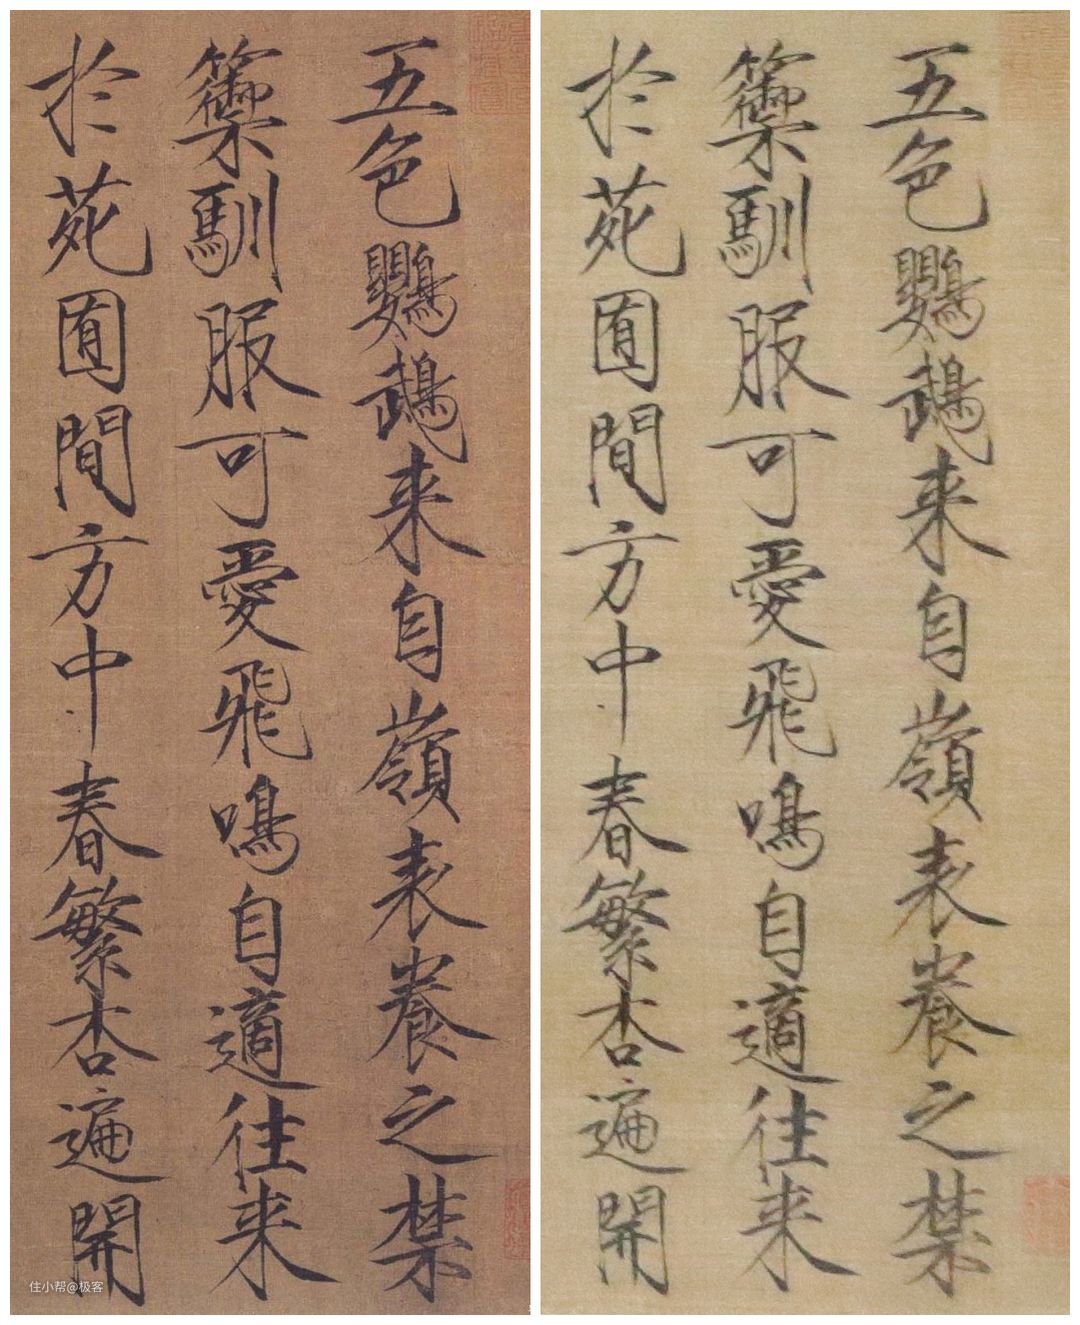 五色鸚鵡来自嶺表養之禁
籞馴服可愛飛鳴自適往来
於苑囿間方中春繁杏遍開
五色鸚鵡来自嶺表養之禁
籞馴服可愛飛鳴自適往来
於苑囿間方中春繁杏遍開
住小帮@极客